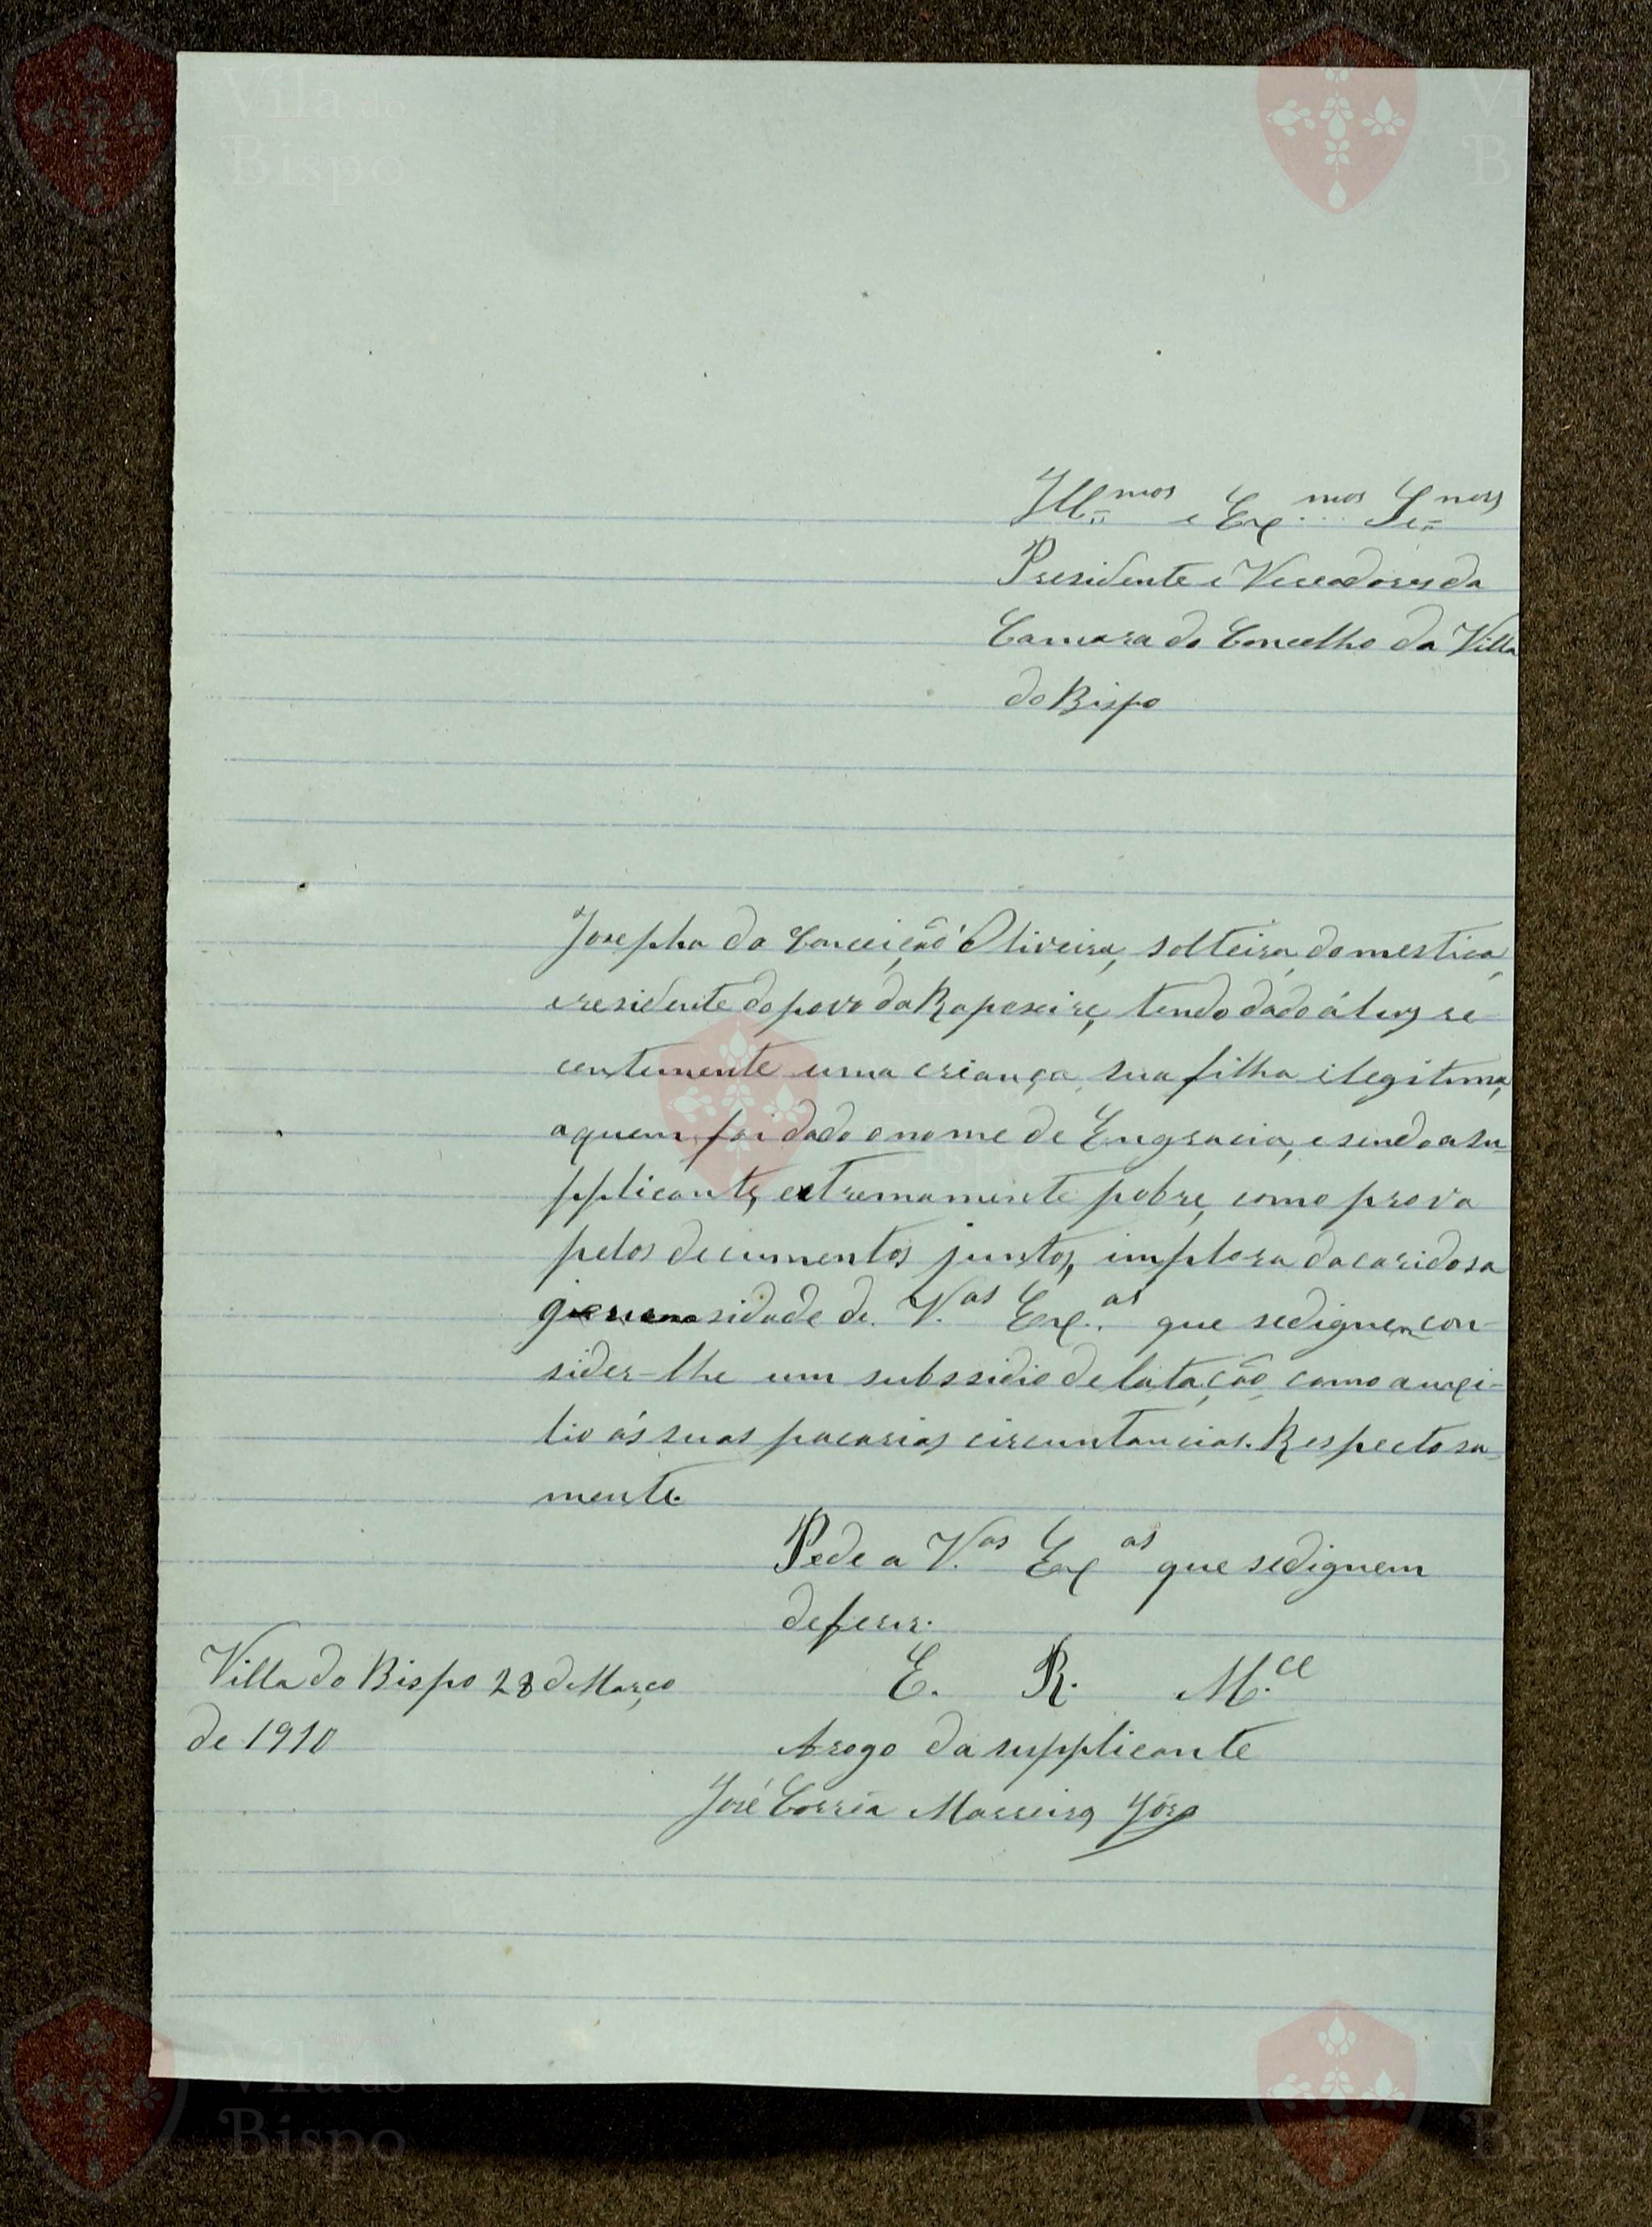 Ill.mos e Ex.mos Se.nors
Presidente e Vereadores da
Camara do Concelho da Villa
do Bispo
Josepha da Conceição Oliveira, solteira, domestica,
e residente do povo da Raposeira, tendo dado á luz re-
centemente uma criança sua filha ilegitima,
a quem foi dado o nome de Engracia, e sendo a su-
pplicante, extremamente pobre, como prova
pelos documentos juntos, implora da caridosa
generosidade de V.as Ex.as que se dignem con-
sider-lhe um subssidio de latação como auxi-
lio ás suas pracarias circuntancias. Respectosa-
mente.
Pede a V.as Ex.as que se dignem
deferir.
Villa do Bispo 28 de Março
de 1910
E. R. M.ce
Arogo da supplicante
José Corrêa Marreiros
Vila do
Bispo